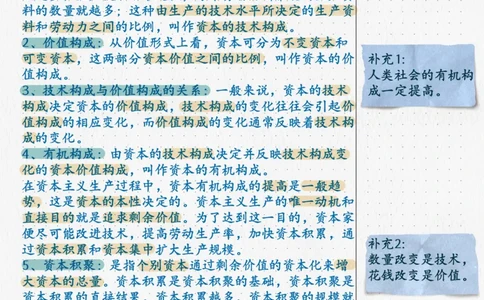 料的数量就越多；这种由生产的技术水平所决定的生产资
料和劳动力之间的比例，叫作资本的技术构成。
2、价值构成：从价值形式上看，资本可分为不变资本和
可变资本，这两部分资本价值之间的比例，叫作资本的价
值构成。
3、技术构成与价值构成的关系：一般来说，资本的技术
构成决定资本的价值构成，技术构成的变化往往会引起价
值构成的相应变化，而价值构成的变化通常反映着技术构
成的变化。
4、有机构成：由资本的技术构成决定并反映技术构成变
化的资本价值构成，叫作资本的有机构成。
在资本主义生产过程中，资本有机构成的提高是一般趋
势，这是资本的本性决定的。资本主义生产的唯一动机和
直接目的就是追求剩余价值。为了达到这一目的，资本家
便尽可能改进技术，提高劳动生产率，加快资本积累，通
过资本积累和资本集中扩大生产规模。
5、资本积聚：是指个别资本通过剩余价值的资本化来增
大资本的总量。资本积累是资本积聚的基础，资本积聚是
资本积累的直接结果。资本积累越多，资本积聚的规模就
补充1：
人类社会的有机构
成一定提高。
补充2：
数量改变是技术，
花钱改变是价值。